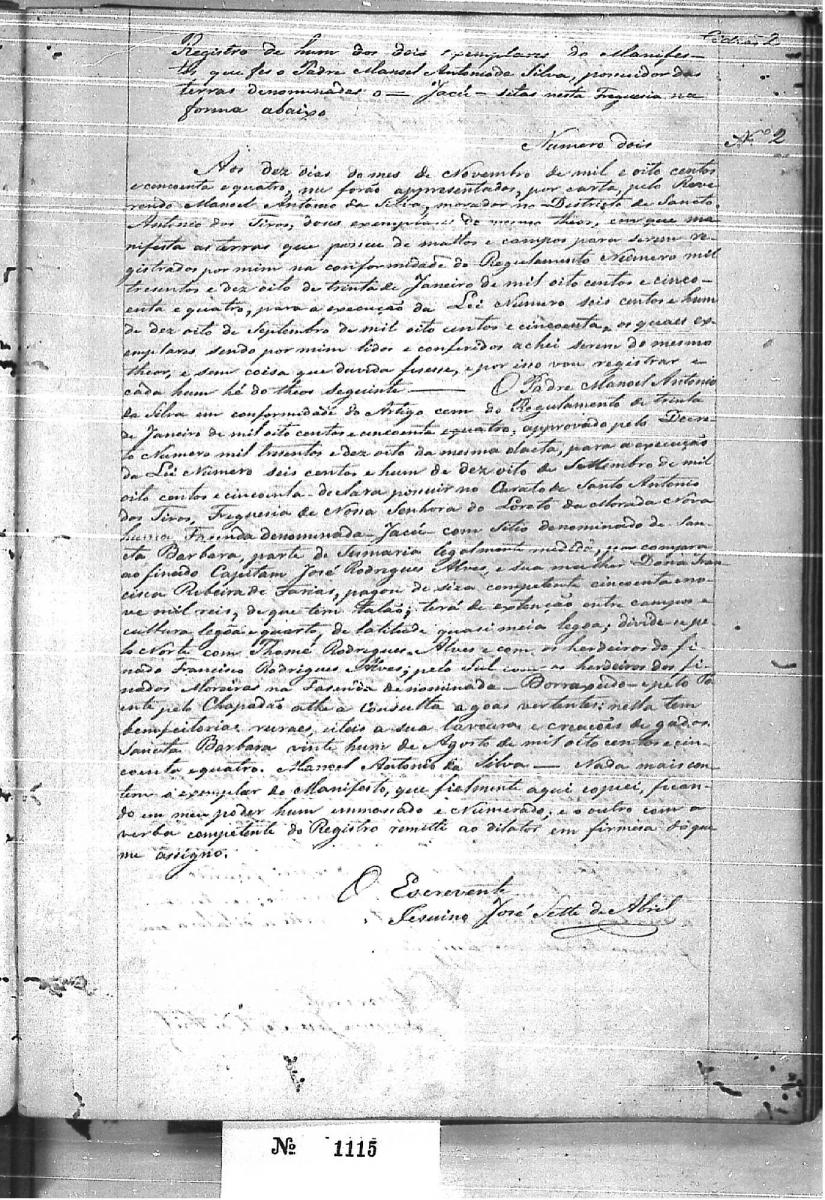 2
Registro de hum dos dois exemplares do Manifes-
to, que fes o Padre Manoel Antonio da Silva, possuidor das
terras denominadas o — Jacú — sitas nesta Freguesia na
forma abaixo
Numero dois Nº 2
Aos dez dias do mes de Novembro de mil e oito centos
e cincoenta e quatro, me forão appresentados, por carta, pelo Reve-
rendo Manoel Antonio da Silva, morador no Districto de Sancto
Antonio dos Tiros, dous exemplares do mesmo theor, em que ma-
nifesta as terras que possue de mattos e campos para serem re-
gistrados por mim na conformidade do Regulamento Número mil
tresentos e dez oito de trinta de Janeiro de mil oito centos e cinco-
enta e quatro, para a execução da Lei Numero seis centos e hum
de dez oito de Septembro de mil oito centos e cincoenta, os quaes ex-
emplares sendo por mim lidos e conferidos achei serem do mesmo
theor, e sem coisa que duvida fisesse, e por isso vou registrar e
cada hum hé do theor seguinte — O Padre Manoel Antonio
da Silva em conformidade do Artigo cem do Regulamento de trinta
de Janeiro de mil oito centos e cincoenta e quatro, approvado pelo Decre-
to Numero mil tresentos e dez oito da mesma dacta, para a execução
da Lei Numero seis centos e hum de dez oito de Settembro de mil
oito centos e cincoenta - declara possuir no Curato de Santo Antonio
dos Tiros, Freguesia de Nossa Senhora do Loreto da Morada Nova
huma Fazenda denominada - Jacú - com Sitio denominado de San-
ta Barbara, parte de Sismaria legalmente medida, por compara
ao finado Capitam José Rodrigues Alves, e sua mulher Dona Fran-
cisca Ribeira de Farias, pagou de siza competente cincoenta e no-
ve mil reis, de que tem talão; terá de extenção entre campos e
cultura legoa e quarto, de latitude quasi meia legoa; divide-se pe-
lo Norte com Thomé Rodrigues Alves e com os herdeiros do fi-
nado Francisco Rodrigues Alves; pelo Sul com os herdeiros dos fi-
nados Moreiras na Fasenda denominada - Borraxudo - e pelo Po-
ente pelo Chapadão athe a agoas vertentes: nella tem
bemfeitorias ruraes, uteis a sua lavoura e creações de gados.
Sancta Barbara vinte hum de Agosto de mil oito centos e cin-
coenta e quatro. Manoel Antonio da Silva — Nada mais con-
tem o exemplar do Manifesto, que fielmente aqui copiei, fican-
do em meu poder hum emmassado e Numerado, e o outro com a
verba competente do Registro remitti ao ditator em firmesa do que
me assigno.
O Escrevente
Jesuino José Sette de Abril
Nº 1115